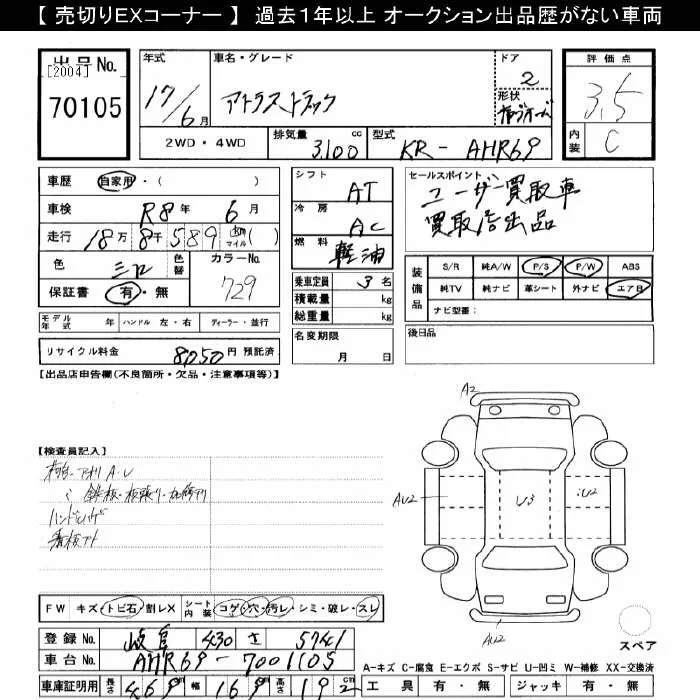 【 売切りEXコーナー 】 過去1年以上 オークション出品歴がない車両
出品 No.
[2004]
70105
年式
17/6月
車名・グレード
アトラストラック
ドア
2
形状
評価点
3.5
内装
C
2WD・4WD
排気量 3,100 cc
型式 KR-AHR69
車歴 自家用・( )
車検 R8年 6月
走行 18万 8千 589 km マイル ( )
色 シロ 色替
カラーNo. 729
保証書 有・無
シフト AT
冷房 AC
燃料 軽油
乗車定員 3名
積載量 kg
総重量 kg
名変期限
月 日
セールスポイント
ユーザー買取車
買取店出品
装備品
S/R 純A/W P/S P/W ABS
純TV 純ナビ 革シート 外ナビ エアB
ナビ型番:
モデル年式 年 ハンドル 左・右 ディーラー・並行
後日品
リサイクル料金 8,050 円 預託済
【出品店申告欄(不良箇所・欠品・注意事項等)】
【検査員記入】
A2
AU2
U3
U2
AU2
スペア
FW キズ・トビ石・割レX シート内装 コゲ・穴・汚レ・シミ・破レ・スレ
登録 No. 岐阜 430 さ 5741
車台 No. AHR69-7001105
車庫証明用 長さ 469 幅 169 高さ 192 cm
A-キズ C-腐食 E-エクボ S-サビ U-凹ミ W-補修 XX-交換済
工具 有・無 ジャッキ 有・無